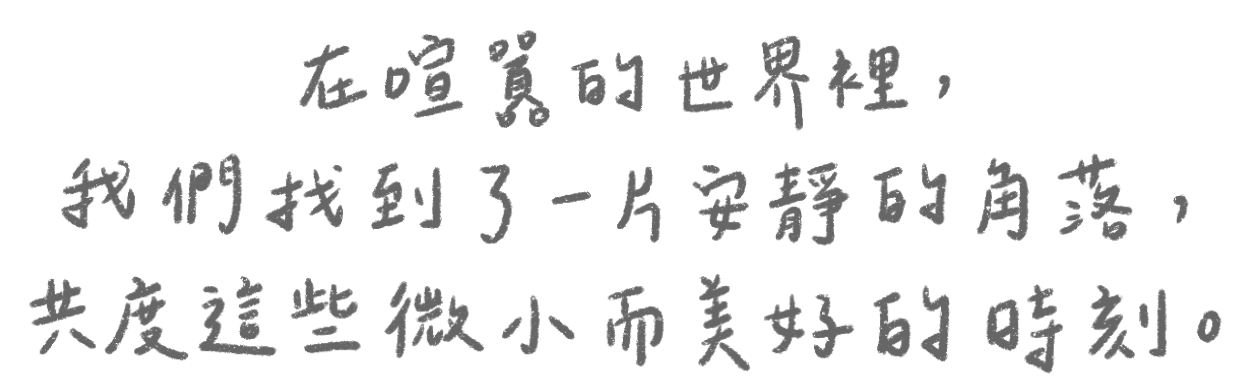 在喧囂的世界裡，
我們找到了一片安靜的角落，
共度這些微小而美好的時刻。